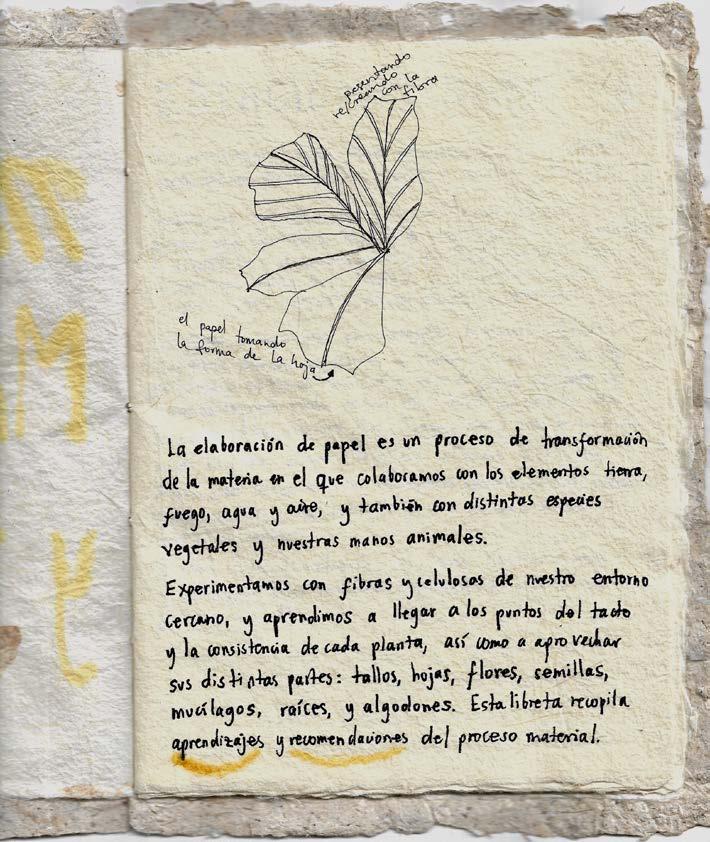 presentando
re/creando
con la
fibra
el papel tomando
la forma de la hoja
La elaboración de papel es un proceso de transformación
de la materia en el que colaboramos con los elementos tierra,
fuego, agua y aire, y también con distintas especies
vegetales y nuestras manos animales.
Experimentamos con fibras y celulosas de nuestro entorno
cercano, y aprendimos a llegar a los puntos del tacto
y la consistencia de cada planta, así como a aprovechar
sus distintas partes: tallos, hojas, flores, semillas,
mucílagos, raíces, y algodones. Esta libreta recopila
aprendizajes y recomendaciones del proceso material.